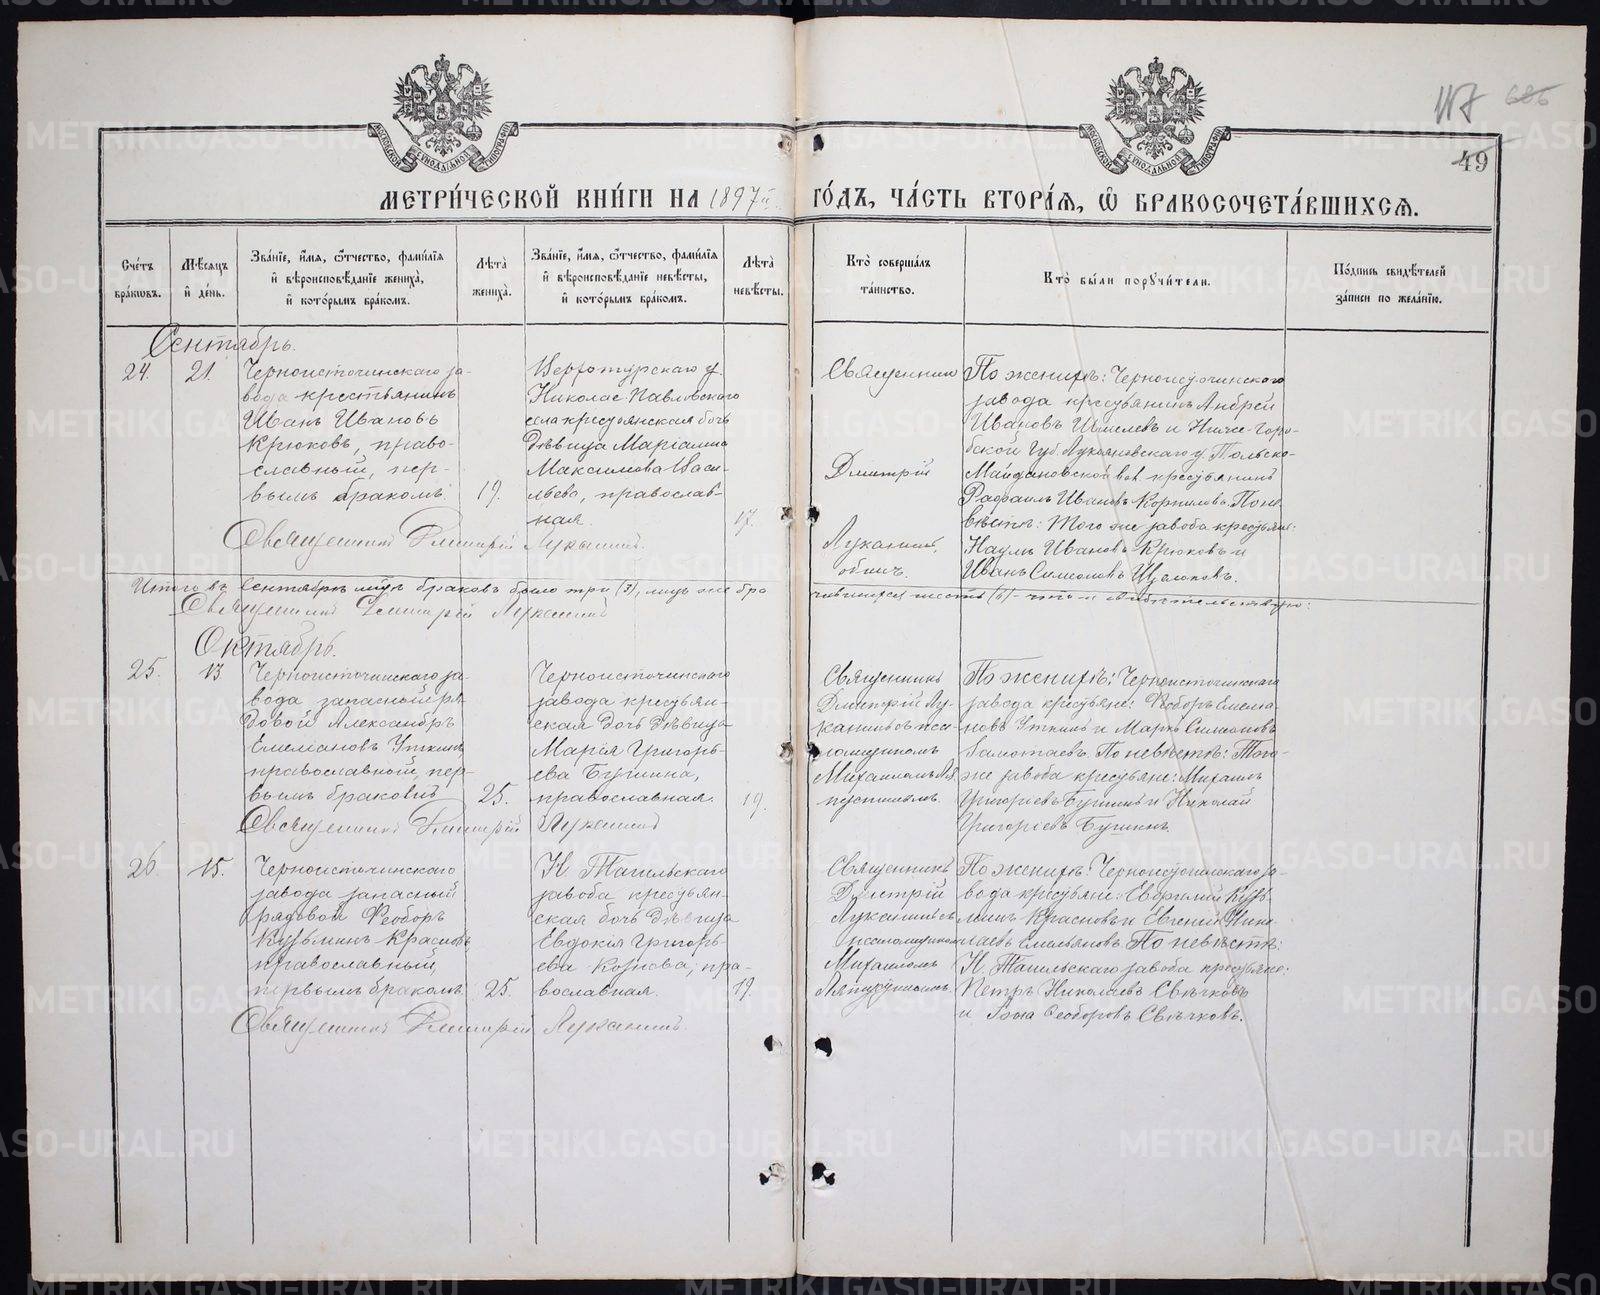 117 686
49
МЕТРИ́ЧЕСКОЙ КНИ́ГИ НА 1897й ГО́ДЪ, ЧА́СТЬ ВТОРА́Ѧ, Ѽ БРАКОСОЧЕТА́ВШИХСѦ.
Сче́тъ бра́ковъ.
Мѣ́сѧцъ и̂ де́нь.
Зва́нїе, и̂́мѧ, ѻ҆́тчество, фами́лїѧ и̂ вѣроисповѣ́данїе жениха̀, и̂ кото́рымъ бра́комъ.
Лѣ́та̀ жениха̀.
Зва́нїе, и̂́мѧ, ѻ҆́тчество, фами́лїѧ и̂ вѣроисповѣ́данїе невѣ́сты, и̂ кото́рымъ бра́комъ.
Лѣ́та̀ невѣ́сты.
Кто̀ соверша́лъ та́инство.
Кто̀ бы́ли порꙋчи́тели.
По́дпись свидѣ́телей за́писи по жела́нїю.
Сентябрь.
24.
21.
Черноисточинскаго за-
вода крестьянинъ
Иванъ Ивановъ
Крюковъ, право-
славный, пер-
вымъ бракомъ.
19.
Верхотурскаго у.
Николае-Павловскаго
села крестьянская дочь
дѣвица Маріамна
Максимова Васи-
льева, православ-
ная.
17.
Священникъ
Дмитрій
Луканинъ,
По женихѣ: Черноисточинскаго
завода крестьянинъ Андрей
Ивановъ Шмелевъ и Ниже-горо-
дской губ. Лукояновскаго у. Польско-
Майдановской вол. крестьянинъ
Рафаилъ Ивановъ Корниловъ. По не-
вѣстѣ: того же завода крестьяне:
Наумъ Ивановъ Крюковъ и
Иванъ Симеоновъ Щелоковъ.
Священникъ Димитрій Луканинъ.
Итого въ Сентябрѣ мцѣ браковъ было три (3), лицъ же бра-
чившихся шесть (6) – что и свидѣтельствую:
Священникъ Димитрій Луканинъ
Октябрь.
25.
13.
Черноисточинскаго за-
вода запасный ря-
довой Александръ
Емельяновъ Уткинъ,
православный, пер-
вымъ бракомъ
25.
Черноисточинскаго
завода крестьян-
ская дочь дѣвица
Марія Григорь-
ева Бушина,
православная.
19.
Священникъ
Дмитрій Лу-
канинъ съ пса-
ломщикомъ
Михаиломъ Ля-
пустинымъ.
По женихѣ: Черноисточинскаго
завода крестьяне: Ѳеодоръ Емелья-
новъ Уткинъ и Марко Симеоновъ
Гамотаевъ. По невѣстѣ: Того-
же завода крестьяне: Михаилъ
Григорьевъ Бушинъ и Николай
Григорьевъ Бушинъ.
Священникъ Димитрій Луканинъ
26.
15.
Черноисточинскаго
завода запасный
рядовой Ѳеодоръ
Кузьминъ Красновъ
православный,
первымъ бракомъ.
25.
Н. Тагильскаго
завода крестьян-
ская дочь дѣвица
Евдокія Григорь-
ева, пра-
вославная.
19.
Священникъ
Дмитрій
Луканинъ съ
псаломщикомъ
Михаиломъ
Ляпустинымъ.
По женихѣ: Черноисточинскаго за-
вода крестьяне: Евфимій Кузь-
минъ Красновъ и Евгеній Нико-
лаевъ Емельяновъ. По невѣстѣ:
Н. Тагильскаго завода крестьяне:
Петръ Николаевъ Свѣчковъ
и Ѳеодоровъ Свѣчковъ.
Священникъ Димитрій Луканинъ.
METRIKI.GASO-URAL.RU